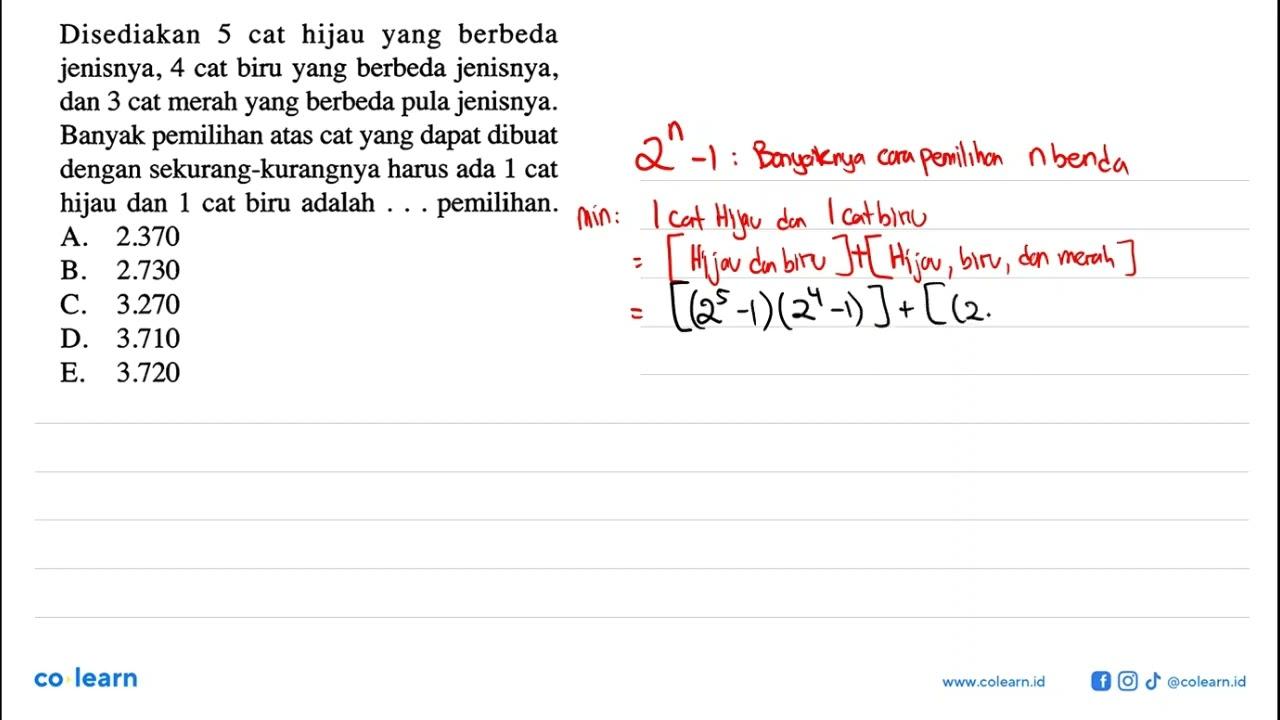 Disediakan 5 cat hijau yang berbeda
jenisnya, 4 cat biru yang berbeda jenisnya,
dan 3 cat merah yang berbeda pula jenisnya.
Banyak pemilihan atas cat yang dapat dibuat
dengan sekurang-kurangnya harus ada 1 cat
hijau dan 1 cat biru adalah . . . pemilihan.
A. 2.370
B. 2.730
C. 3.270
D. 3.710
E. 3.720
2ⁿ - 1 : Banyaknya cara pemilihan n benda
Min: 1 cat Hijau dan 1 cat biru
= [Hijau dan biru] + [Hijau, biru, dan merah]
= [(2⁵ - 1)(2⁴ - 1)] + [(2.
co learn
www.colearn.id
@colearn.id